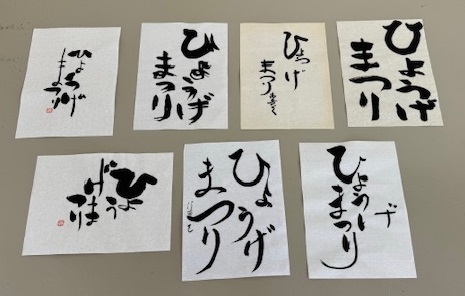 ひょうげ
まつり
ひょうげ
まつり
ひょうげ
まつり
ひょうげ
まつり
ひょう
げま
つり
ひょうげ
まつり
ひょうげ
まつり